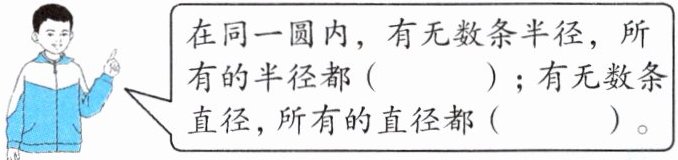 在同一圆内，有无数条半径，所
有的半径都（　　　）；有无数条
直径，所有的直径都（　　　）。